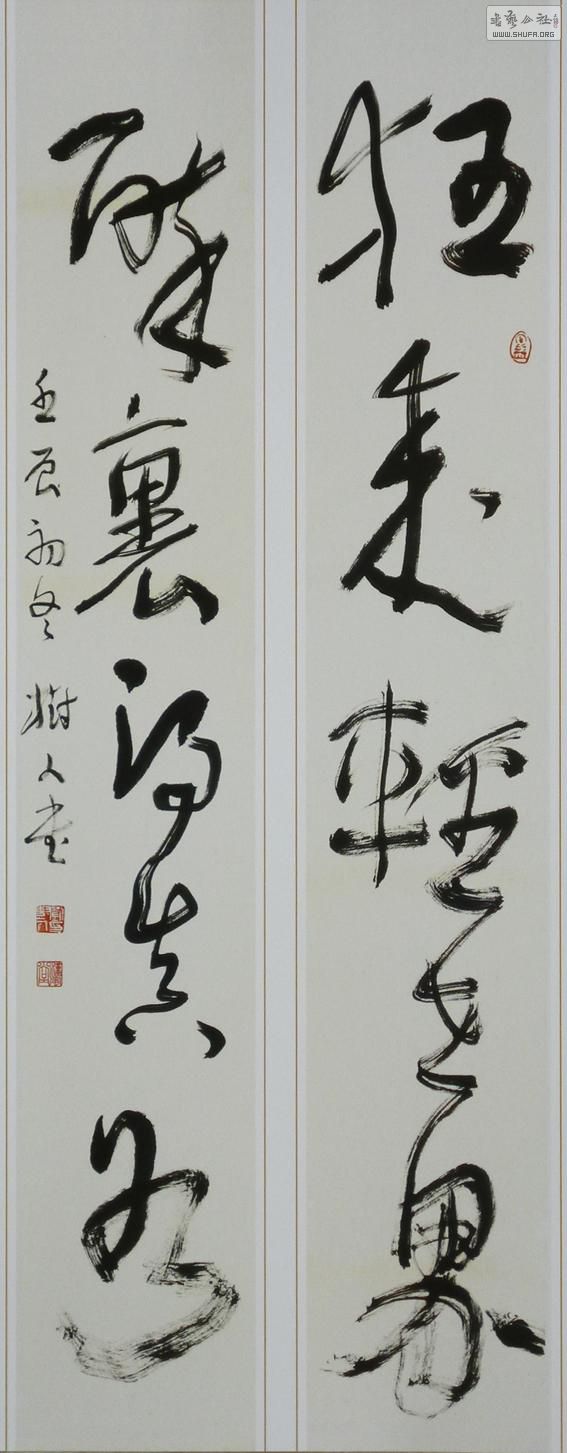 狂来輕世界
醉裏得真如
壬辰初冬 樹人書
書藝公社
WWW.SHUFA.ORG